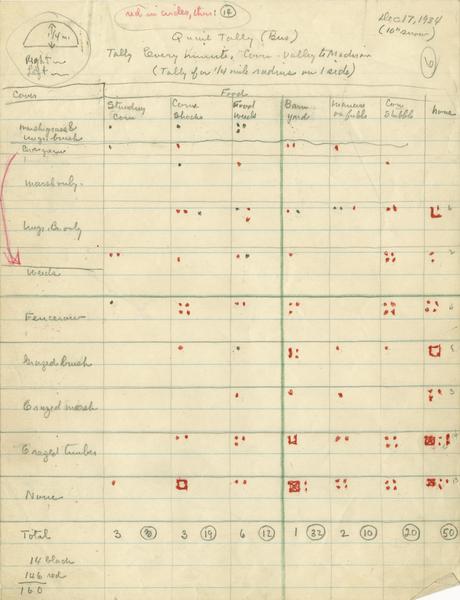 red in circles, thus: 12
Dec 17, 1934
(10" snow)
1/4 m
Right
Left
Quail Tally (Bus)
6
Tally Every minute, Valley to Madison
(Tally for 1/4 mile radius on 1 side)
Cover
Food
Standing Corn
Corn Shocks
Food Weeds
Barn yard
Manure on fields
Corn Stubble
None
Marshgrass & ungr. brush
Evergreen
Marsh only
Ungr. Br. only
Weeds
Fencerow
Grazed brush
Grazed marsh
Grazed timber
None
Total 3 3 19 6 12 1 32 2 10 20 50
14 black
146 red
160